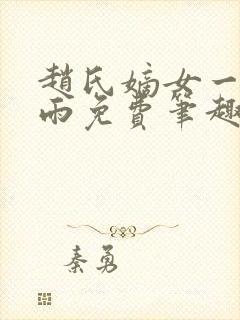 趙氏嫡女一
雨免費筆趣
秦勇